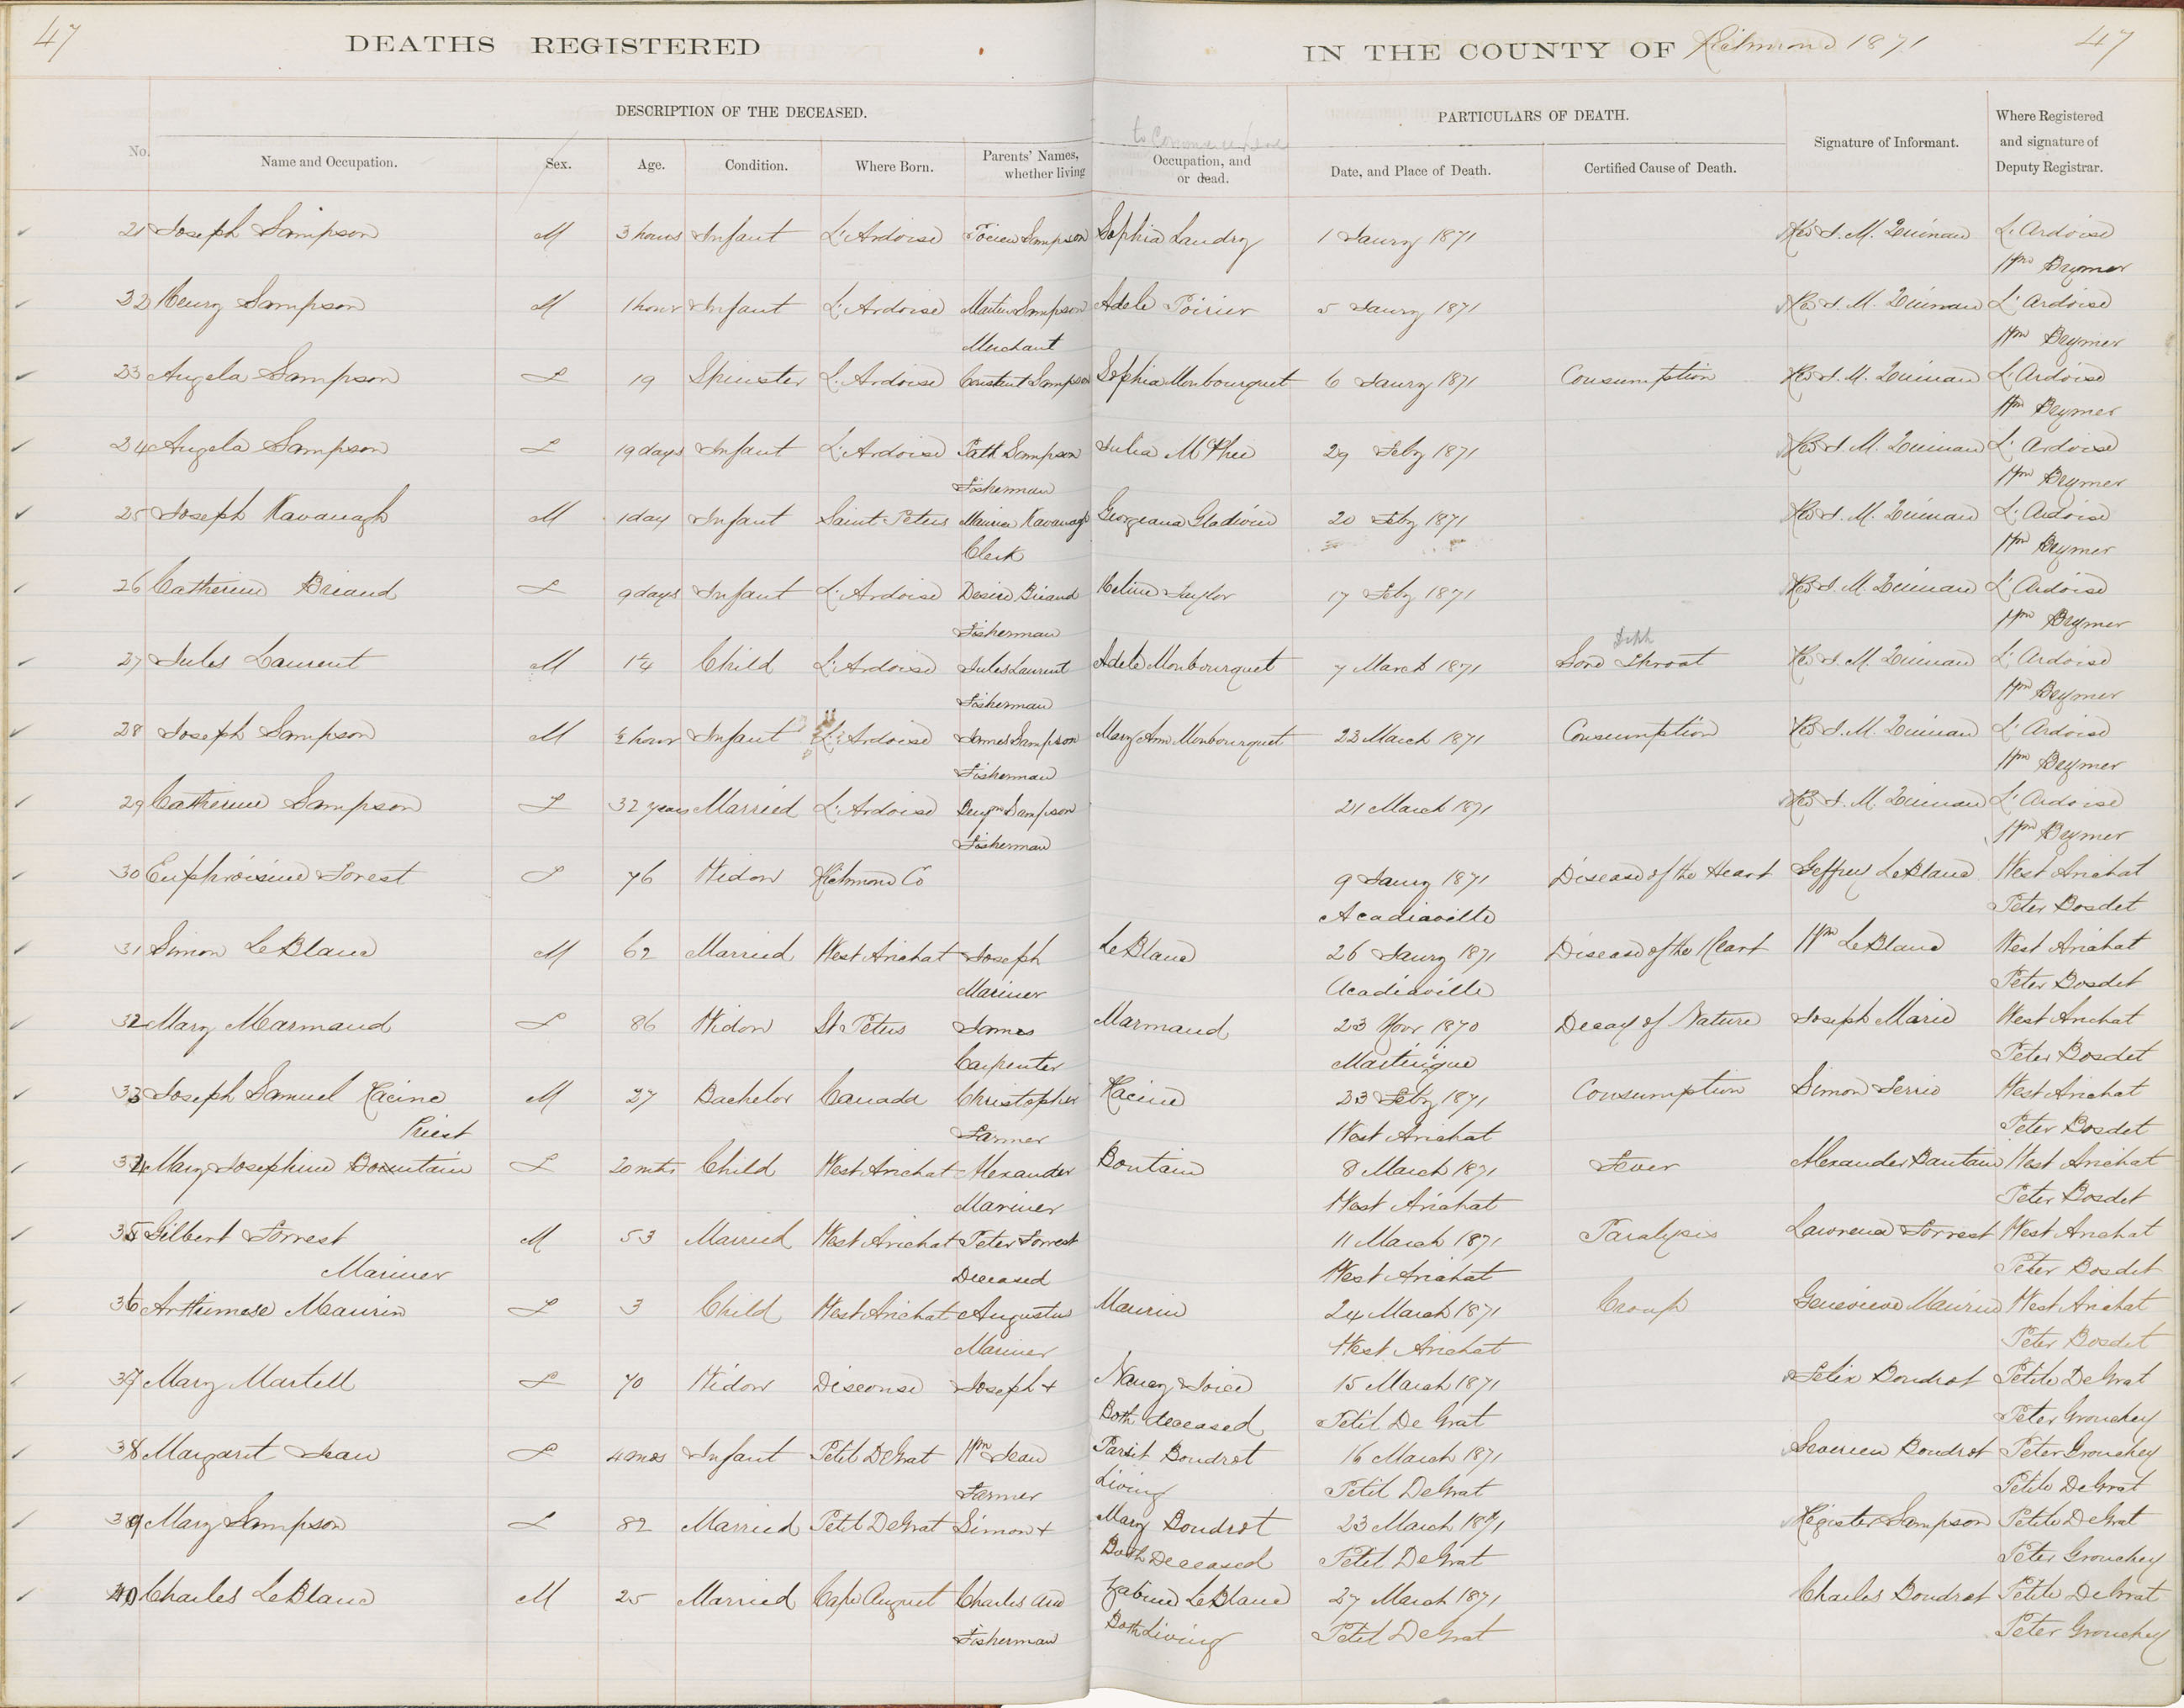 47 DEATHS REGISTERED IN THE COUNTY OF Richmond 1871 47
DESCRIPTION OF THE DECEASED. PARTICULARS OF DEATH.
No. Name and Occupation. Sex. Age. Condition. Where Born. Parents' Names, whether living Occupation, and or dead. Date, and Place of Death. Certified Cause of Death. Signature of Informant. Where Registered and signature of Deputy Registrar.
21 Joseph Sampson M 3 hours Infant L'Ardoise Sampson Sophia Landry 1 Jaury 1871 Revd J. M. Quinan L'Ardoise
Wm Brymer
22 Henry Sampson M 1 hour Infant L'Ardoise Martin Sampson Adele Poirier 5 Jaury 1871 Revd J. M. Quinan L'Ardoise
Merchant Wm Brymer
23 Angela Sampson F 19 Spinster L'Ardoise Constant Sampson Sophia Monbourquet 6 Jaury 1871 Consumption Revd J. M. Quinan L'Ardoise
Wm Brymer
24 Angela Sampson F 19 days Infant L'Ardoise Patk Sampson Julia McPhee 29 Feby 1871 Revd J. M. Quinan L'Ardoise
Fisherman Wm Brymer
25 Joseph Kavanagh M 1 day Infant Saint Peters Maurice Kavanagh Georgeana 20 Feby 1871 Revd J. M. Quinan L'Ardoise
Clerk Wm Brymer
26 Catherine Briand F 9 days Infant L'Ardoise Desire Briand Celina Taylor 17 Feby 1871 Revd J. M. Quinan L'Ardoise
Fisherman Wm Brymer
27 Jules Laurent M 1 1/4 Child L'Ardoise Jules Laurent Adele Monbourquet 7 March 1871 Sore Throat Revd J. M. Quinan L'Ardoise
Fisherman Wm Brymer
28 Joseph Sampson M ½ hour Infant L'Ardoise James Sampson Mary Ann Monbourquet 22 March 1871 Consumption Revd J. M. Quinan L'Ardoise
Fisherman Wm Brymer
29 Catherine Sampson F 32 years Married L'Ardoise Benjn Sampson 21 March 1871 Revd J. M. Quinan L'Ardoise
Fisherman Wm Brymer
30 Euphroisine Forest F 76 Widow Richmond Co 9 Jaury 1871 Disease of the Heart Geffrey LeBlanc West Arichat
Acadiaville Peter Bosdet
31 Simon LeBlanc M 62 Married West Arichat Joseph LeBlanc 26 Jaury 1871 Disease of the Heart Wm LeBlanc West Arichat
Mariner Acadiaville Peter Bosdet
32 Mary Marmaud F 86 Widow St Peters James Marmaud 23 Novr 1870 Decay of Nature Joseph Marie West Arichat
Carpenter Martinique Peter Bosdet
33 Joseph Samuel Racine M 27 Bachelor Canada Christopher Racine 23 Feby 1871 Consumption Simon Terrio West Arichat
Priest Farmer West Arichat Peter Bosdet
34 Mary Josephine Bountain F 20 mths Child West Arichat Alexander Bontain 8 March 1871 Fever Alexander Bantain West Arichat
Mariner West Arichat Peter Bosdet
35 Gilbert Forrest M 53 Married West Arichat Peter Forrest 11 March 1871 Paralysis Lawrence Forrest West Arichat
Mariner Deceased West Arichat Peter Bosdet
36 Arthemese Maurin F 3 Child West Arichat Augustus Maurin 24 March 1871 Croup Genevieve Maurin West Arichat
Mariner West Arichat Peter Bosdet
37 Mary Martell F 70 Widow Discouse Joseph + Nancy Joice 15 March 1871 Felix Boudrot Petite DeGrat
Both deceased Petit De Grat Peter Grouchey
38 Margaret Jean F 4 mos Infant Petit DeGrat Wm Jean Boudrot 16 March 1871 Severien Boudrot Peter Grouchey
Farmer Living Petit DeGrat Petite DeGrat
39 Mary Sampson F 82 Married Petit DeGrat Simon + Mary Boudrot 23 March 1871 Register Sampson Petite DeGrat
Both Deceased Petit DeGrat Peter Grouchey
40 Charles LeBlanc M 25 Married Cape August Charles and Zabine LeBlanc 27 March 1871 Charles Boudrot Petite DeGrat
Fisherman Both Living Petit DeGrat Peter Grouchey